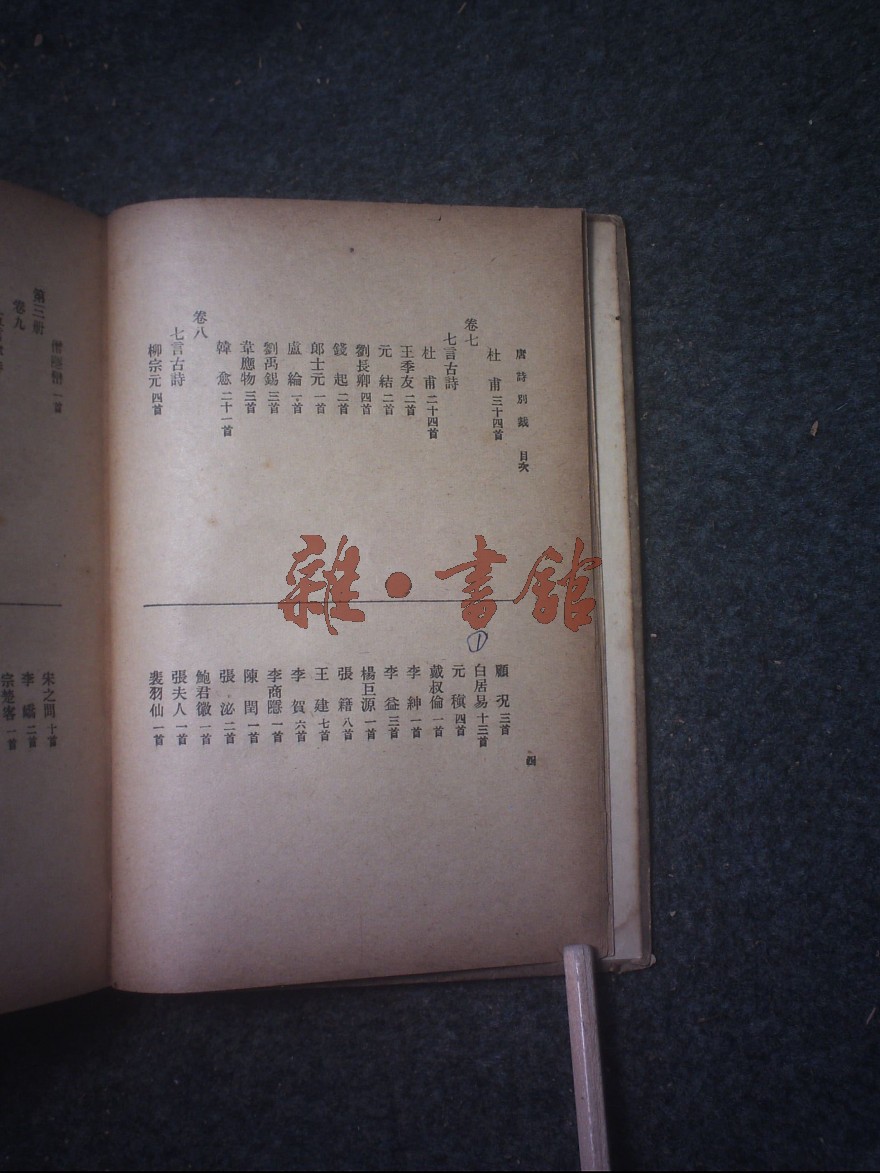 唐詩別裁 目次
杜甫 三十四首
卷七
七言古詩
杜甫 二十四首
王季友 二首
元結 二首
劉長卿 四首
錢起 二首
郎士元 一首
盧綸 一首
劉禹錫 三首
韋應物 三首
韓愈 二十一首
卷八
七言古詩
柳宗元 四首
顧況 三首
白居易 十三首
元稹 四首
戴叔倫 一首
李紳 一首
李益 三首
楊巨源 一首
張籍 八首
王建 七首
李賀 六首
李商隱 一首
陳閏 一首
張泌 二首
鮑君徽 一首
張夫人 一首
裴羽仙 一首
四
①
雜·書館
一首
第三册
卷九
宋之問 十首
李嶠 二首
宗楚客 一首